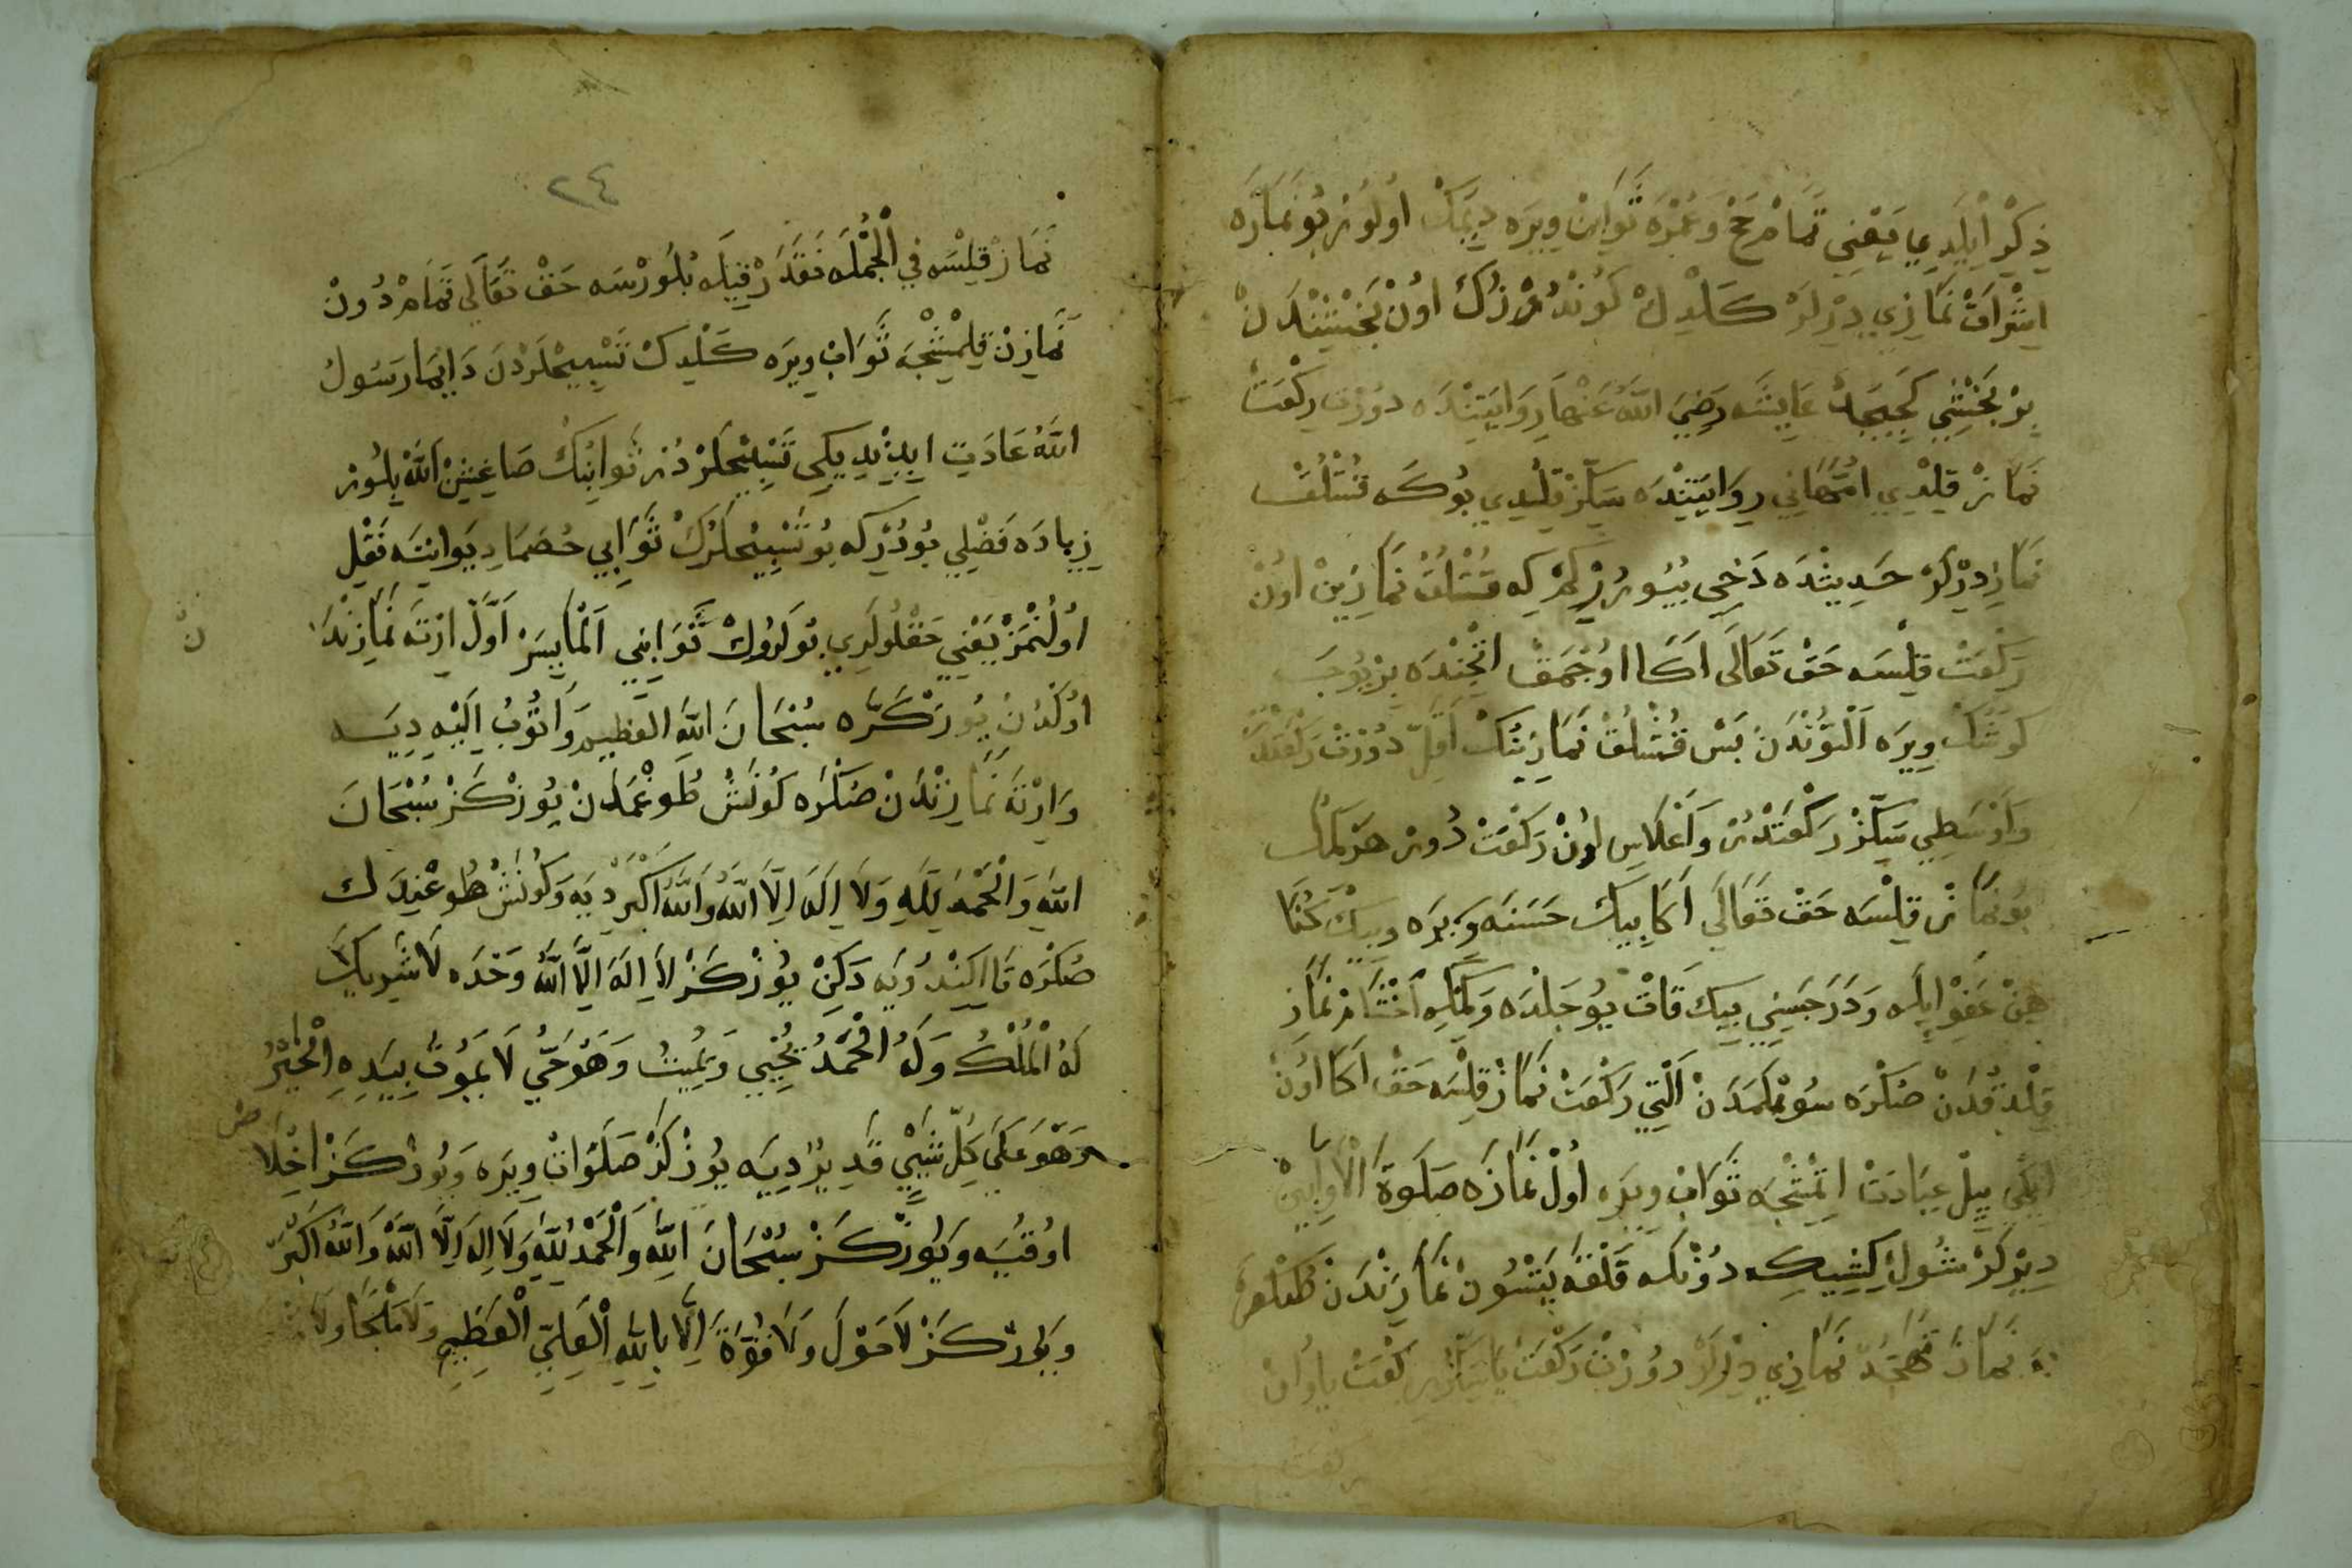 ذِكْر اَيْلَدِي يَعْنِي تَمَامْ حَجْ وَعُمْرَه ثَوَابِنْ وِيرَه دِيمَكْ اُولُورْ بُو نَمَازَه
اِشْرَاقْ نَمَازِي دِيرْلَرْ كَلْدِكْ كُونْدُزُكْ اُونْ بَخْشِنْدَنْ
بِرْ بَخْشِي كَجِيجَكْ عَايِشَه رَضِيَ اللّٰهُ عَنْهَا رِوَايَتِنْدَه دُورْتْ رَكْعَتْ
نَمَازْ قِلْدِي اُمَّهَانِي رِوَايَتِنْدَه سَكِّزْ قِلْدِي بُوكَه قُشْلُقْ
نَمَازِ دِيرْلَرْ حَدِيثْدَه دَخِي بُيُورُرْلَرْ كِه قُشْلُقْ نَمَازِينْ اُونْ
رَكْعَتْ قِلْسَه حَقْ تَعَالَى اَكَا اُوجْمَقْ اِيْچِنْدَه بِرْ يُوجَه
كُوشْكْ وِيرَه اَلْتُونْدَنْ بَسْ قُشْلُقْ نَمَازِينُكْ اَقَلِّ دُورْتْ رَكْعَتْدُرْ
وَاَوْسَطِي سَكِّزْ رَكْعَتْدُرْ وَاَعْلَاسِ اُونْ رَكْعَتْ دُورْ هَرْ كِمْكِ
بُو نَمَازْ قِلْسَه حَقْ تَعَالَى اَكَا بِيكْ حَسَنَه وِيرَه وَبِيكْ كُنَا
هِنْ عَفْوْ اَيْلَه وَدَرَجَسِنِي بِيكْ قَاتْ يُوجَلْدَه وَكَلْكِه اَخْشَامْ نَمَازِ
قِلْدُقْدَنْ صُكْرَه سُوْيْلَمَدَنْ اَلْتِي رَكْعَتْ نَمَازْ قِلْسَه حَقْ اَكَا اُونْ
اِيكِي يِيلْ عِبَادَتْ اِتْمِشْجَه ثَوَابْ وِيرَه اُولْ نَمَازَه صَلَوةُ الْاَوَّابِينْ
دِيرْلَرْ شُولْ كِشِيكِه دُونْلَه قَلْقَه يَتْسُونْ نَمَازِنْدَنْ
نَمَازْ تَهَجُّدْ نَمَازِي دِيرْلَرْ دُورْتْ رَكْعَتْ يَا سَكِّزْ رَكْعَتْ يَا اُونْ
٢٤
نَمَازْ قِلْسَه فِي الْجُمْلَه نَقَدَرْ قِيلَه بُلُورْسَه حَقْ تَعَالَى تَمَامْ دُونْ
نَمَازِنْ قِلْمِشْجَه ثَوَابْ وِيرَه كَلْدِكْ تَسْبِيحْلَرْدَنْ دَايِمَا رَسُولُ
اللّٰهْ عَادَتْ اِيدِنِدِيكِي تَسْبِيحْلَرْدُرْ ثَوَابِنُكْ صَاغِشِنْ اَللّٰهْ بِلُورْ
زِيَادَه فَضْلِي بُودُرْكِه بُو تَسْبِيحْلَرُكْ ثَوَابِي خُصَمَا دِيوَانِنَه نَقْلْ
اُولُنْمَزْ يَعْنِي حَقْلُولَرِي بُونْلَرُوكْ ثَوَابِنِي اَلْمَايِسَرْ اَوَّلْ اِرْتَه نَمَازِنْدَنْ
اُوكْدِنْ يُوزْ كَرَّه سُبْحَانَ اللّٰهِ الْعَظِيمِ وَاَتُوبُ اِلَيْهِ دِيَه
وَاِرْتَه نَمَازِنْدَنْ صُكْرَه كُونَشْ طُوغْمَدَنْ يُوزْ كَزْ سُبْحَانَ
اللّٰهِ وَالْحَمْدُ لِلّٰهِ وَلَا اِلَهَ اِلَّا اللّٰهُ وَاللّٰهُ اَكْبَرْ دِيَه وَكُونَشْ طُوغْدِقْدَنْ
صُكْرَه دَكِنْ يُوزْ كَزْ لَا اِلَهَ اِلَّا اللّٰهُ وَحْدَه لَا شَرِيكَ
لَهُ الْمُلْكُ وَلَهُ الْحَمْدُ يُحْيِي وَيُمِيتُ وَهُوَ حَيٌّ لَا يَمُوتُ بِيَدِهِ الْخَيْرُ
وَهُوَ عَلَى كُلِّ شَيْءٍ قَدِيرٌ دِيَه يُوزْ كَزْ صَلَوَاتْ وِيرَه وَيُوزْ كَزْ اِخْلَاصْ
اُوقُيَه وَيُوزْ كَزْ سُبْحَانَ اللّٰهِ وَالْحَمْدُ لِلّٰهِ وَلَا اِلَهَ اِلَّا اللّٰهُ وَاللّٰهُ اَكْبَرْ
وَيُوزْ كَزْ لَا حَوْلَ وَلَا قُوَّةَ اِلَّا بِاللّٰهِ الْعَلِيِّ الْعَظِيمِ وَلَا مَلْجَا وَلَا